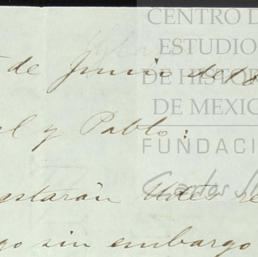 CENTRO D
ESTUDIO
DE HISTOR
DE MEXIC
FUNDACI
de Junio de 18
l y Pablo:
estarán Udes re
go sin embargo